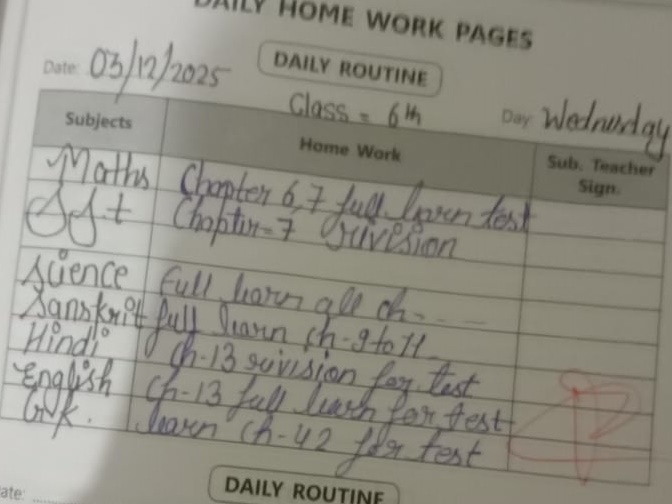 DAILY HOME WORK PAGES
DAILY ROUTINE
Date: 03/12/2025
Class = 6th
Day: Wednesday
Subjects Home Work Sub. Teacher Sign.
Maths Chapter 6,7 full learn test
SSt Chapter-7 revision
Science full learn all ch-....
Sanskrit full learn ch-9 to 11
Hindi ch-13 revision for test
English ch-13 full learn for test
G.K. learn ch-42 for test
DAILY ROUTINE
ate: